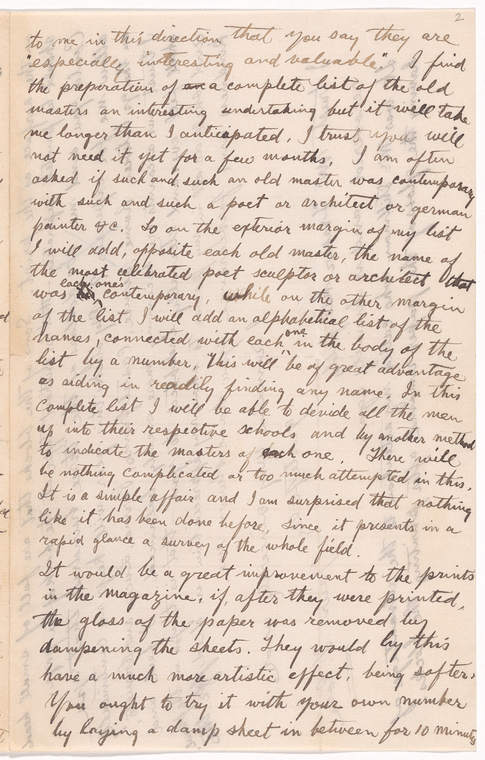 2
to me in this direction that you say they are
"especially interesting and valuable". I find
the preparation of a complete list of the old
masters an interesting undertaking but it will take
me longer than I anticipated. I trust you will
not need it yet for a few months. I am often
asked if such and such an old master was contemporary
with such and such a poet or architect or german
painter &c. So on the exterior margin of my list
I will add, opposite each old master, the name of
the most celebrated poet sculptor or architect that
was each ones contemporary, while on the other margin
of the list I will add an alphabetical list of the
names, connected with each one in the body of the
list by a number. This will be of great advantage
as aiding in readily finding any name. In this
complete list I will be able to devide all the men
up into their respective schools and by another method
to indicate the masters of each one. There will
be nothing complicated or too much attempted in this.
It is a simple affair and I am surprised that nothing
like it has been done before, since it presents in a
rapid glance a survey of the whole field.
It would be a great improvement to the prints
in the magazine, if, after they were printed,
the gloss of the paper was removed by
dampening the sheets. They would by this
have a much more artistic effect, being softer.
You ought to try it with your own number
by laying a damp sheet in between for 10 minutes